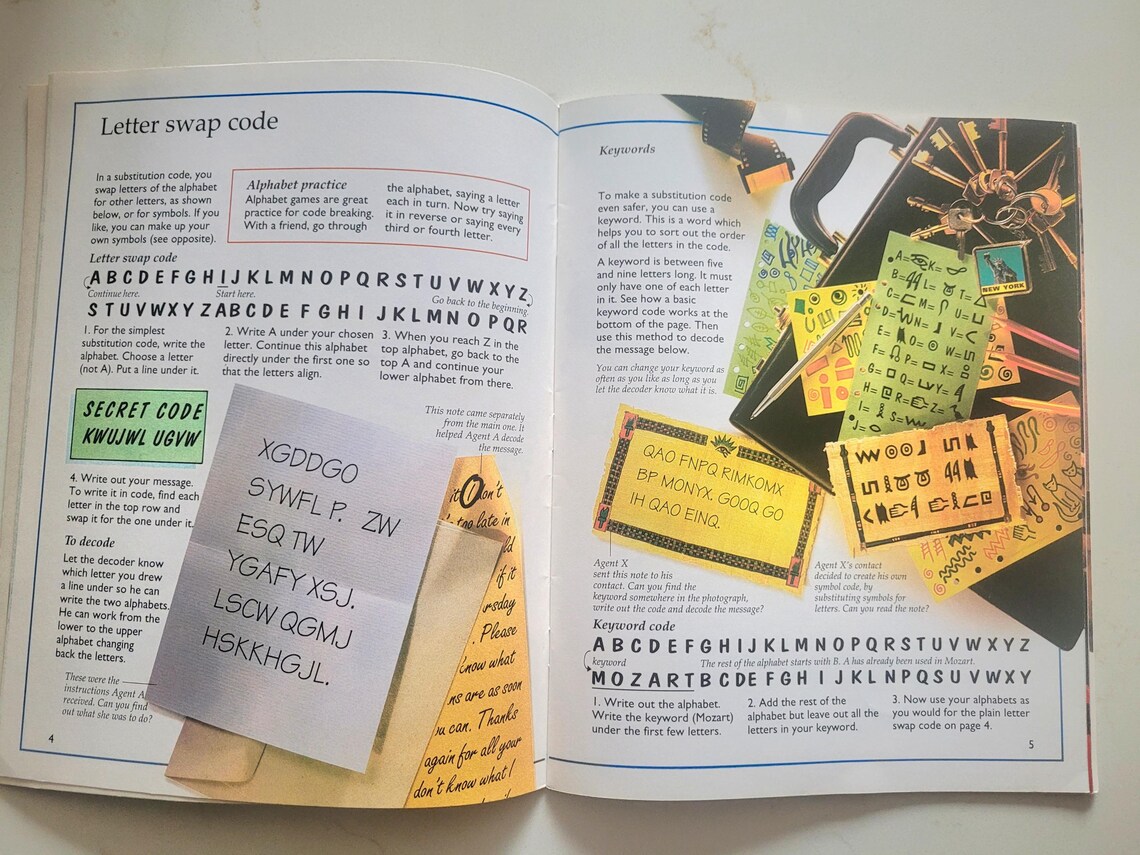 Letter swap code
In a substitution code, you
swap letters of the alphabet
for other letters, as shown
below, or for symbols. If you
like, you can make up your
own symbols (see opposite).
Alphabet practice
Alphabet games are great
practice for code breaking.
With a friend, go through
the alphabet, saying a letter
each in turn. Now try saying
it in reverse or saying every
third or fourth letter.
Letter swap code
A B C D E F G H I J K L M N O P Q R S T U V W X Y Z
Continue here. Start here. Go back to the beginning.
S T U V W X Y Z A B C D E F G H I J K L M N O P Q R
1. For the simplest
substitution code, write the
alphabet. Choose a letter
(not A). Put a line under it.
2. Write A under your chosen
letter. Continue this alphabet
directly under the first one so
that the letters align.
3. When you reach Z in the
top alphabet, go back to the
top A and continue your
lower alphabet from there.
SECRET CODE
KWUJWL UGVW
This note came separately
from the main one. It
helped Agent A decode
the message.
XGDDGO
SYWFL P. ZW
ESQ TW
YGAFY XSJ.
LSCW QGMJ
HSKKHGJL.
it
don't
too late in
if it
rsday
. Please
know what
ns are as soon
u can. Thanks
again for all your
don't know what I
4. Write out your message.
To write it in code, find each
letter in the top row and
swap it for the one under it.
To decode
Let the decoder know
which letter you drew
a line under so he can
write the two alphabets.
He can work from the
lower to the upper
alphabet changing
back the letters.
These were the
instructions Agent A
received. Can you find
out what she was to do?
4
Keywords
To make a substitution code
even safer, you can use a
keyword. This is a word which
helps you to sort out the order
of all the letters in the code.
A keyword is between five
and nine letters long. It must
only have one of each letter
in it. See how a basic
keyword code works at the
bottom of the page. Then
use this method to decode
the message below.
You can change your keyword as
often as you like as long as you
let the decoder know what it is.
NEW YORK
A= K=
B= L= T=
C= M= U=
D= N= V=
E= O= W=
F= P= X=
G= Q= Y=
H= R= Z=
I= S=
J=
QAO FNPQ RIMKOMX
BP MONYX. GOOQ GO
IH QAO EINQ.
Agent X
sent this note to his
contact. Can you find the
keyword somewhere in the photograph,
write out the code and decode the message?
Agent X's contact
decided to create his own
symbol code, by
substituting symbols for
letters. Can you read the note?
Keyword code
A B C D E F G H I J K L M N O P Q R S T U V W X Y Z
keyword The rest of the alphabet starts with B. A has already been used in Mozart.
M O Z A R T B C D E F G H I J K L N P Q S U V W X Y
1. Write out the alphabet.
Write the keyword (Mozart)
under the first few letters.
2. Add the rest of the
alphabet but leave out all the
letters in your keyword.
3. Now use your alphabets as
you would for the plain letter
swap code on page 4.
5